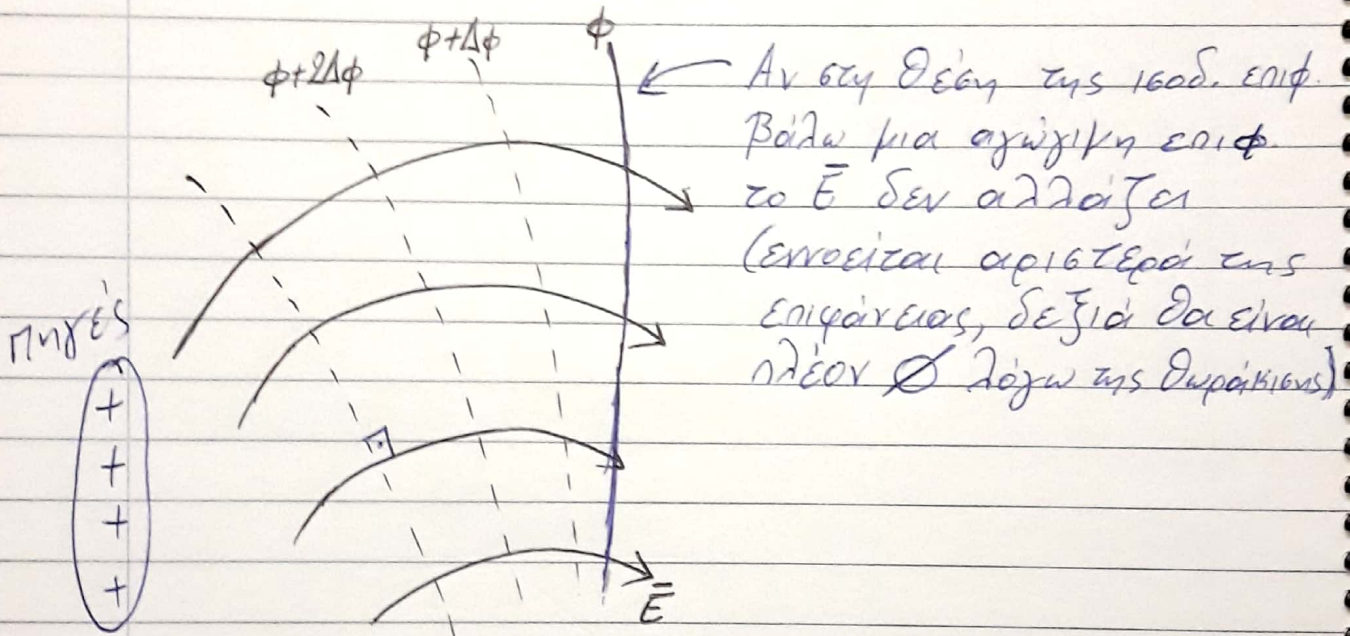 φ+2Δφ
φ+Δφ
φ
Αν στη θέση της ισοδ. επιφ.
βάλω μια αγώγιμη επιφ.
το Ē δεν αλλάζει
(εννοείται αριστερά της
επιφάνειας, δεξιά θα είναι
πλέον ∅ λόγω της θωράκισης)
πηγές
+
+
+
+
Ē